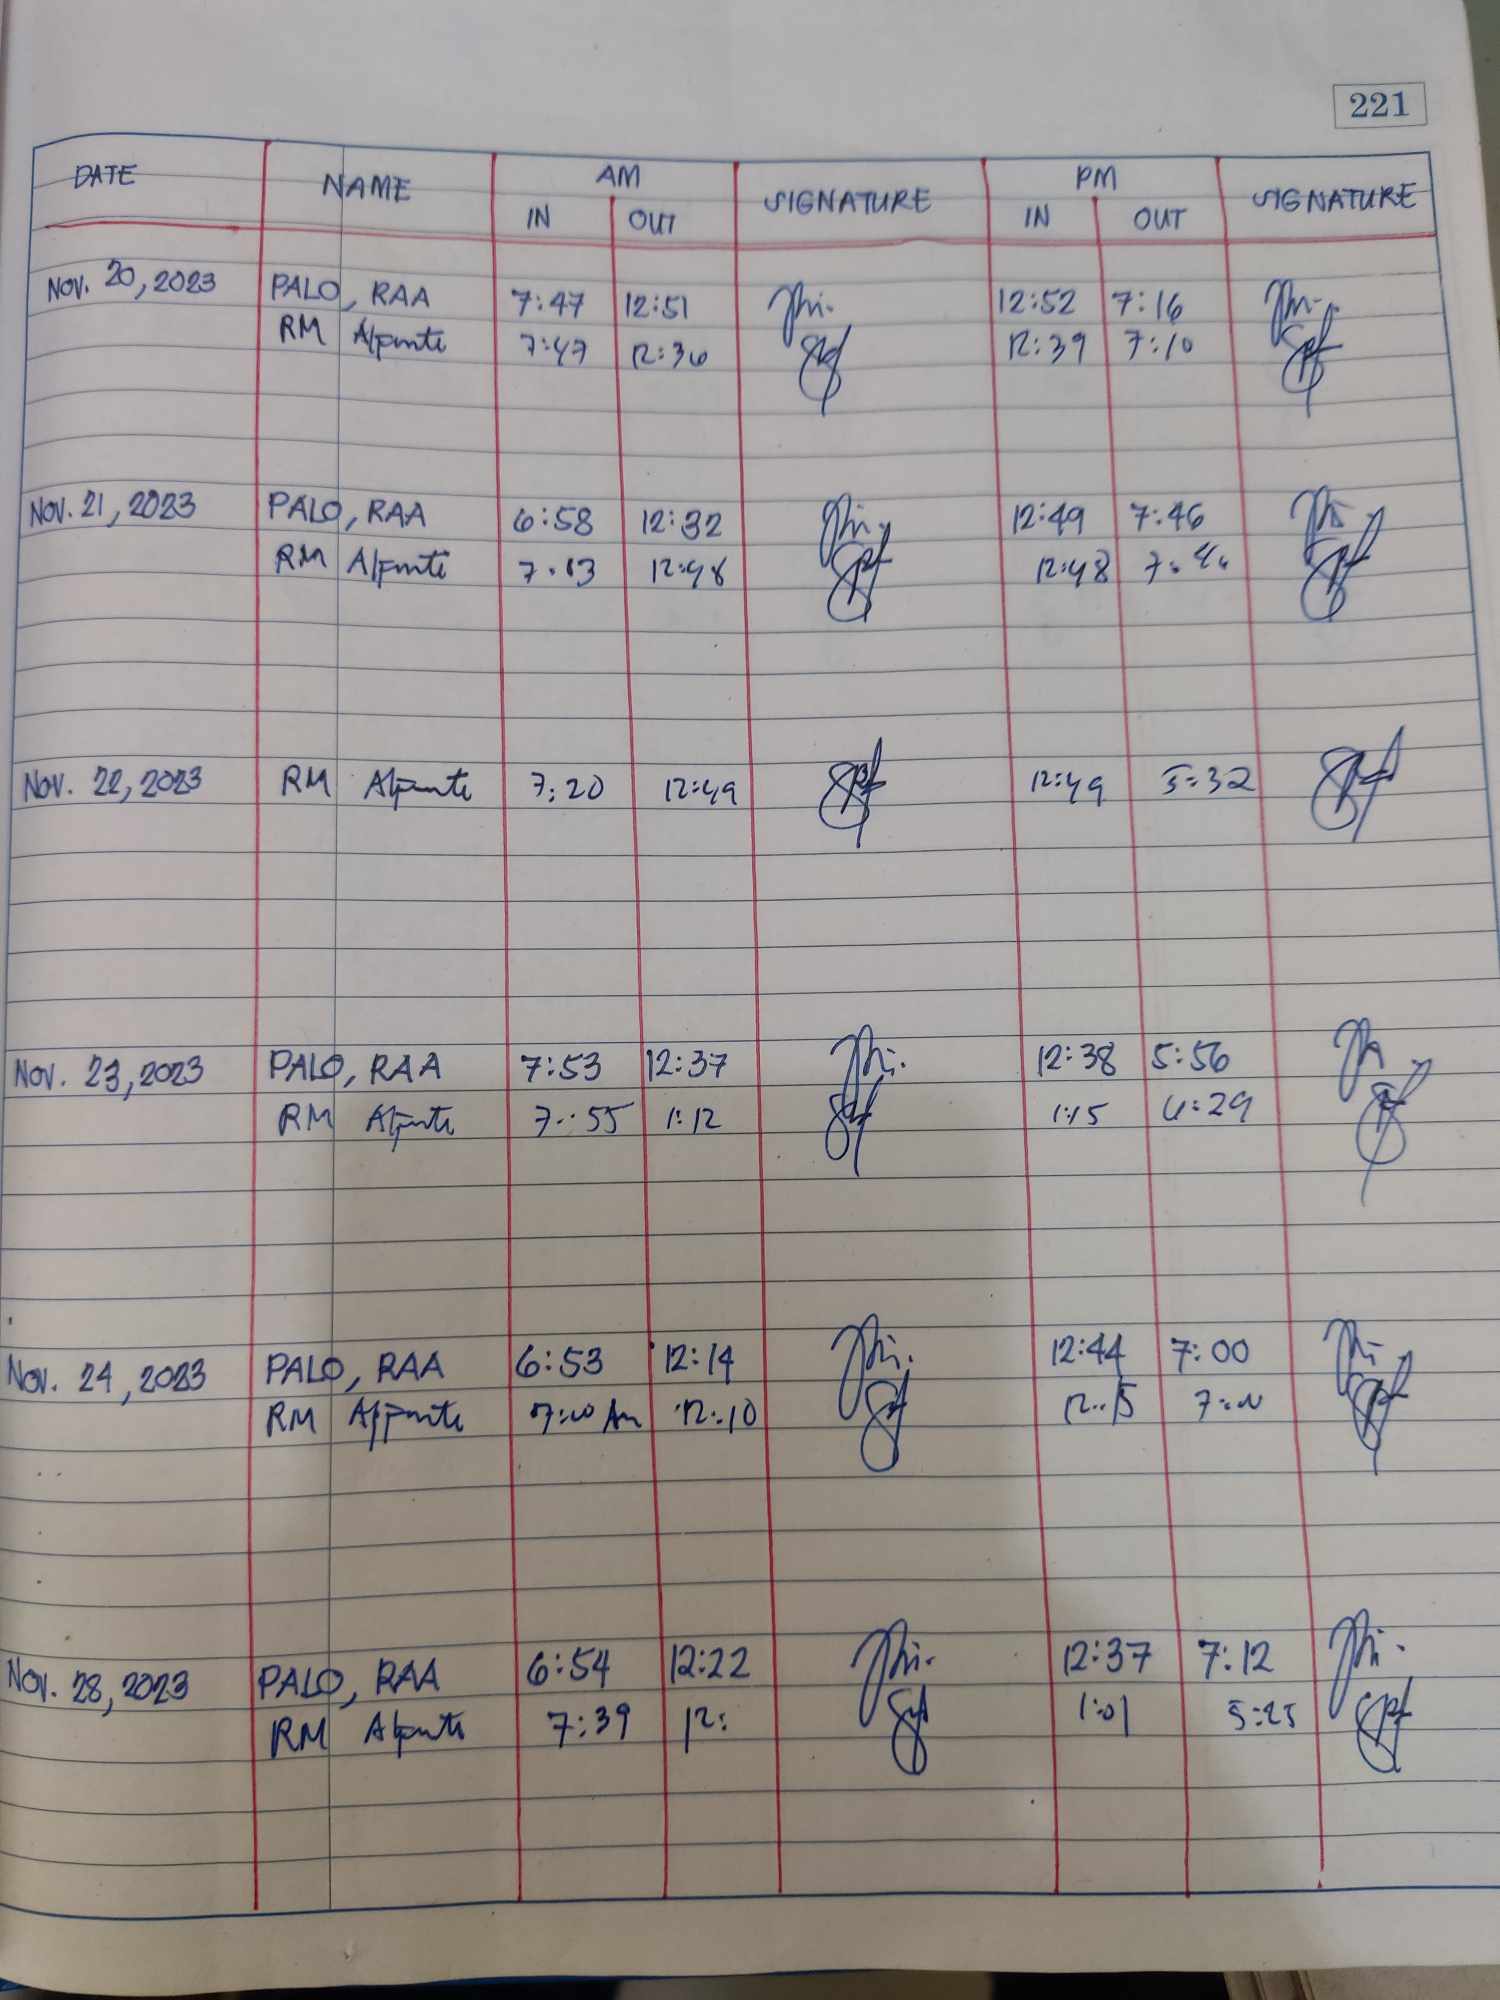 221
DATE NAME AM SIGNATURE PM SIGNATURE
IN OUT IN OUT
NOV. 20, 2023 PALO, RAA 7:47 12:51 12:52 7:16
RM Alpunte 7:47 12:36 12:39 7:10
NOV. 21, 2023 PALO, RAA 6:58 12:32 12:49 7:46
RM Alpunte 7:13 12:48 12:48
NOV. 22, 2023 RM Alpunte 7:20 12:49 12:49 5:32
NOV. 23, 2023 PALO, RAA 7:53 12:37 12:38 5:56
RM Alpunte 7:55 1:12 1:15 6:29
NOV. 24, 2023 PALO, RAA 6:53 12:14 12:44 7:00
RM Alpunte 12:10 12:15
NOV. 28, 2023 PALO, RAA 6:54 12:22 12:37 7:12
RM Alpunte 7:39 12: 1:01 5:25